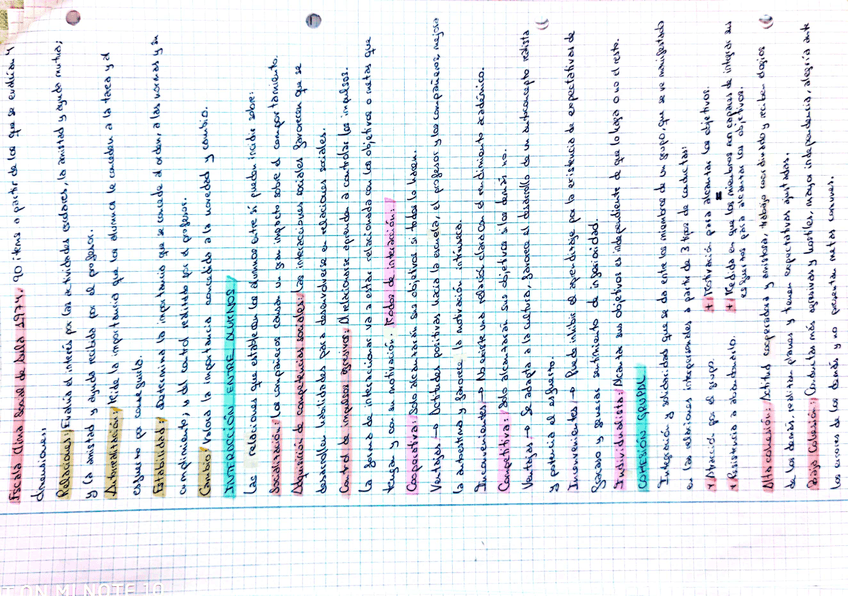 Escala Clima Social de Aula 1974. 90 items a partir de los que se evalúan 4
dimensiones:
Relaciones: Evalúa el interés por las actividades escolares, la amistad y ayuda mutua;
y la amistad y ayuda recibida por el profesor.
Autorrealización: Mide la importancia que los alumnos le conceden a la tarea y el
esfuerzo pa conseguirlo.
Estabilidad: Determina la importancia que se concede al orden, a las normas y su
cumplimiento; y del control realizado por el profesor.
Cambio: Valora la importancia concedida a la novedad y cambio.
INTERACCIÓN ENTRE ALUMNOS
Las relaciones que establecen los alumnos entre sí pueden incidir sobre:
Socialización: Los compañeros causan un gran impacto sobre el comportamiento.
Adquisición de competencias sociales: Las interacciones sociales favorecen que se
desarrollen habilidades para desenvolverse en relaciones sociales.
Control de impulsos agresivos: Al relacionarse aprenden a controlar los impulsos.
La forma de interaccionar va a estar relacionada con los objetivos o metas que
tengan y con su motivación. Modos de interacción:
Cooperativa: Solo alcanzarán sus objetivos si todos lo hacen.
Ventajas → Actitudes positivas hacia la escuela, el profesor y los compañeros mejora
la autoestima y favorece la motivación intrínseca.
Inconvenientes → No existe una relación clara con el rendimiento académico.
Competitiva: Solo alcanzarán sus objetivos si los demás no.
Ventajas → Se adapta a la cultura, favorece el desarrollo de un autoconcepto realista
y potencia el esfuerzo.
Inconvenientes → Puede inhibir el aprendizaje por la existencia de expectativas de
fracaso y generar sentimiento de inferioridad.
Individualista: Alcanzar sus objetivos es independiente de que lo haga o no el resto.
COHESIÓN GRUPAL
Integración y solidaridad que se da entre los miembros de un grupo, que se ve manifestada
en las relaciones interpersonales a partir de 3 tipos de conductas:
* Atracción por el grupo. * Motivación para alcanzar los objetivos.
* Resistencia a abandonarlo. * Medida en que los miembros son capaces de integrar sus
esfuerzos para alcanzar los objetivos.
Alta cohesión: Actitud cooperadora y amistosa, trabajo más divertido y reciben elogios
de los demás, realizan planes y tienen expectativas ajustadas.
Baja Cohesión: Conductas más agresivas y hostiles, mayor independencia, alegría ante
los errores de los demás y no presentan metas comunes.